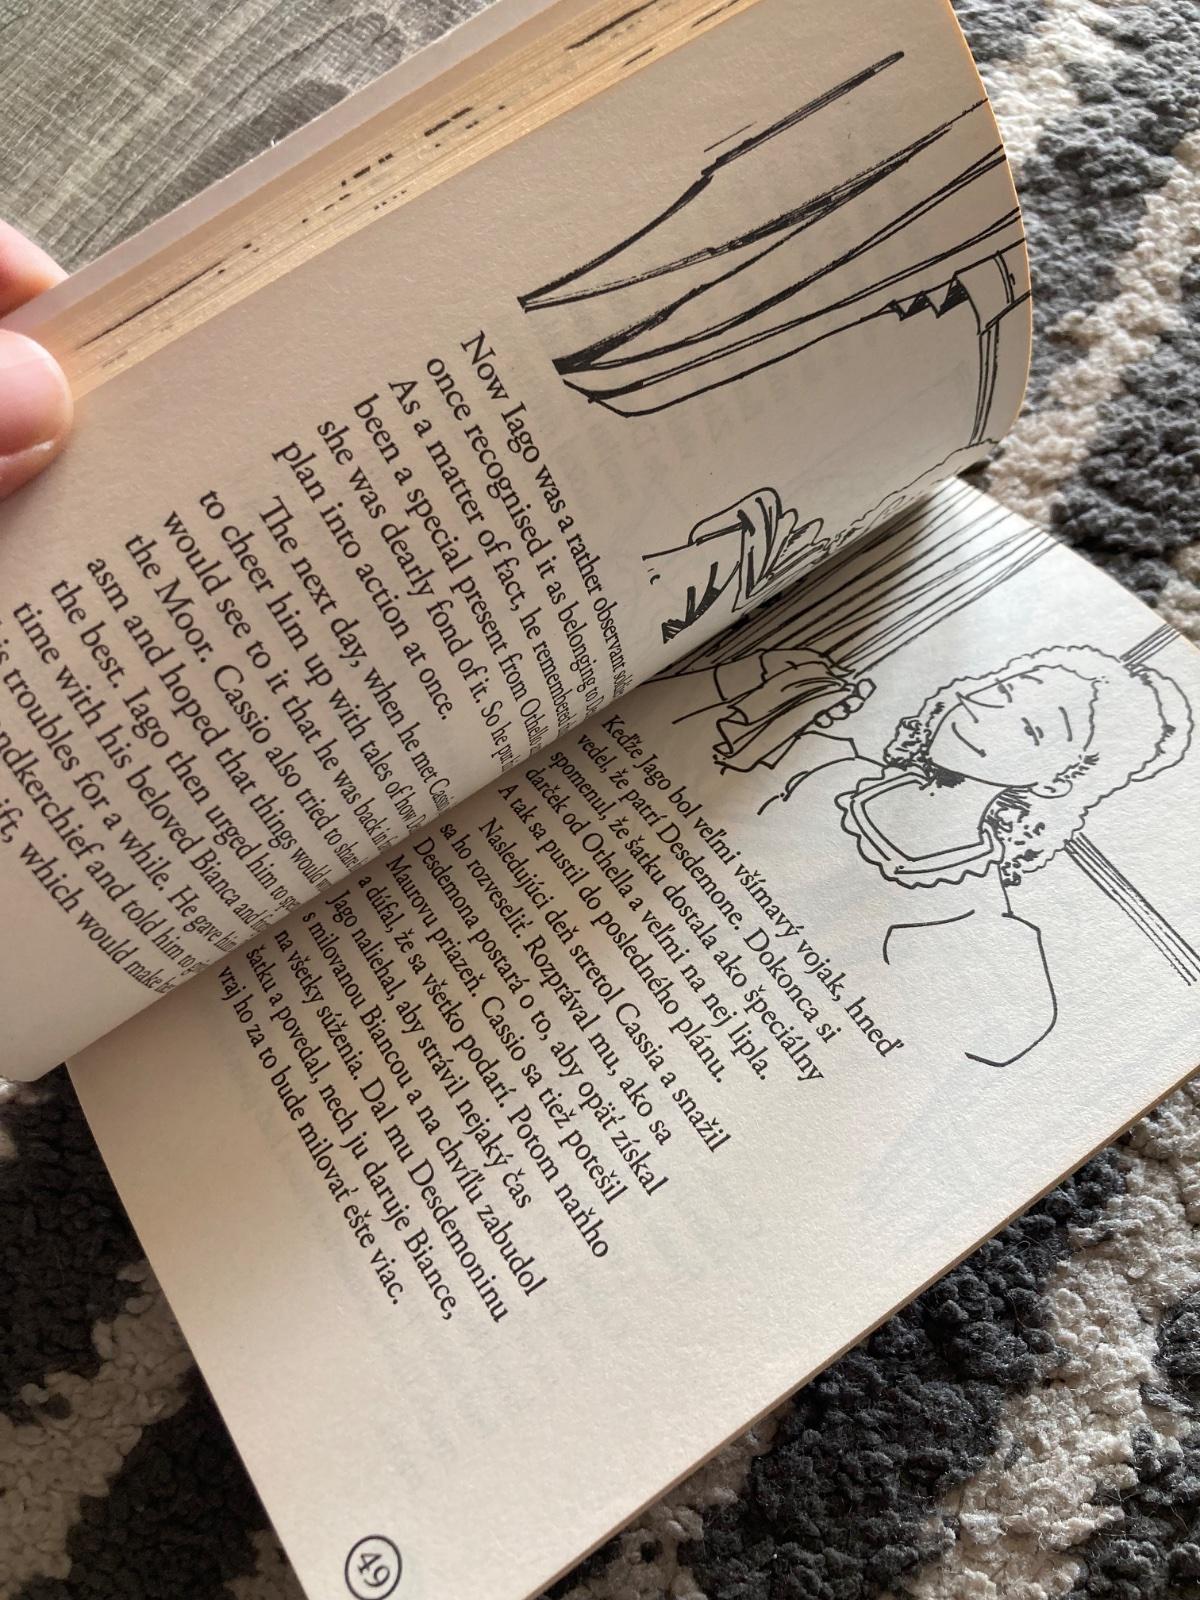 Now Iago was a rather observant
once recognised it as belonging to
As a matter of fact, he remembered
been a special present from Othello
she was dearly fond of it. So he put
plan into action at once.
The next day, when he met Cassio
to cheer him up with tales of how
would see to it that he was back in
the Moor. Cassio also tried to share
asm and hoped that things would
the best. Iago then urged him to
time with his beloved Bianca and
troubles for a while. He gave him
and told him to
which would make her
Keďže Jago bol veľmi všímavý vojak, hneď
vedel, že patrí Desdemone. Dokonca si
spomenul, že šatku dostala ako špeciálny
darček od Othella a veľmi na nej lipla.
A tak sa pustil do posledného plánu.
Nasledujúci deň stretol Cassia a snažil
sa ho rozveseliť. Rozprával mu, ako sa
Desdemona postará o to, aby opäť získal
Maurovu priazeň. Cassio sa tiež potešil
a dúfal, že sa všetko podarí. Potom naňho
Jago naliehal, aby strávil nejaký čas
s milovanou Biancou a na chvíľu zabudol
na všetky súženia. Dal mu Desdemoninu
šatku a povedal, nech ju daruje Biance,
vraj ho za to bude milovať ešte viac.
49